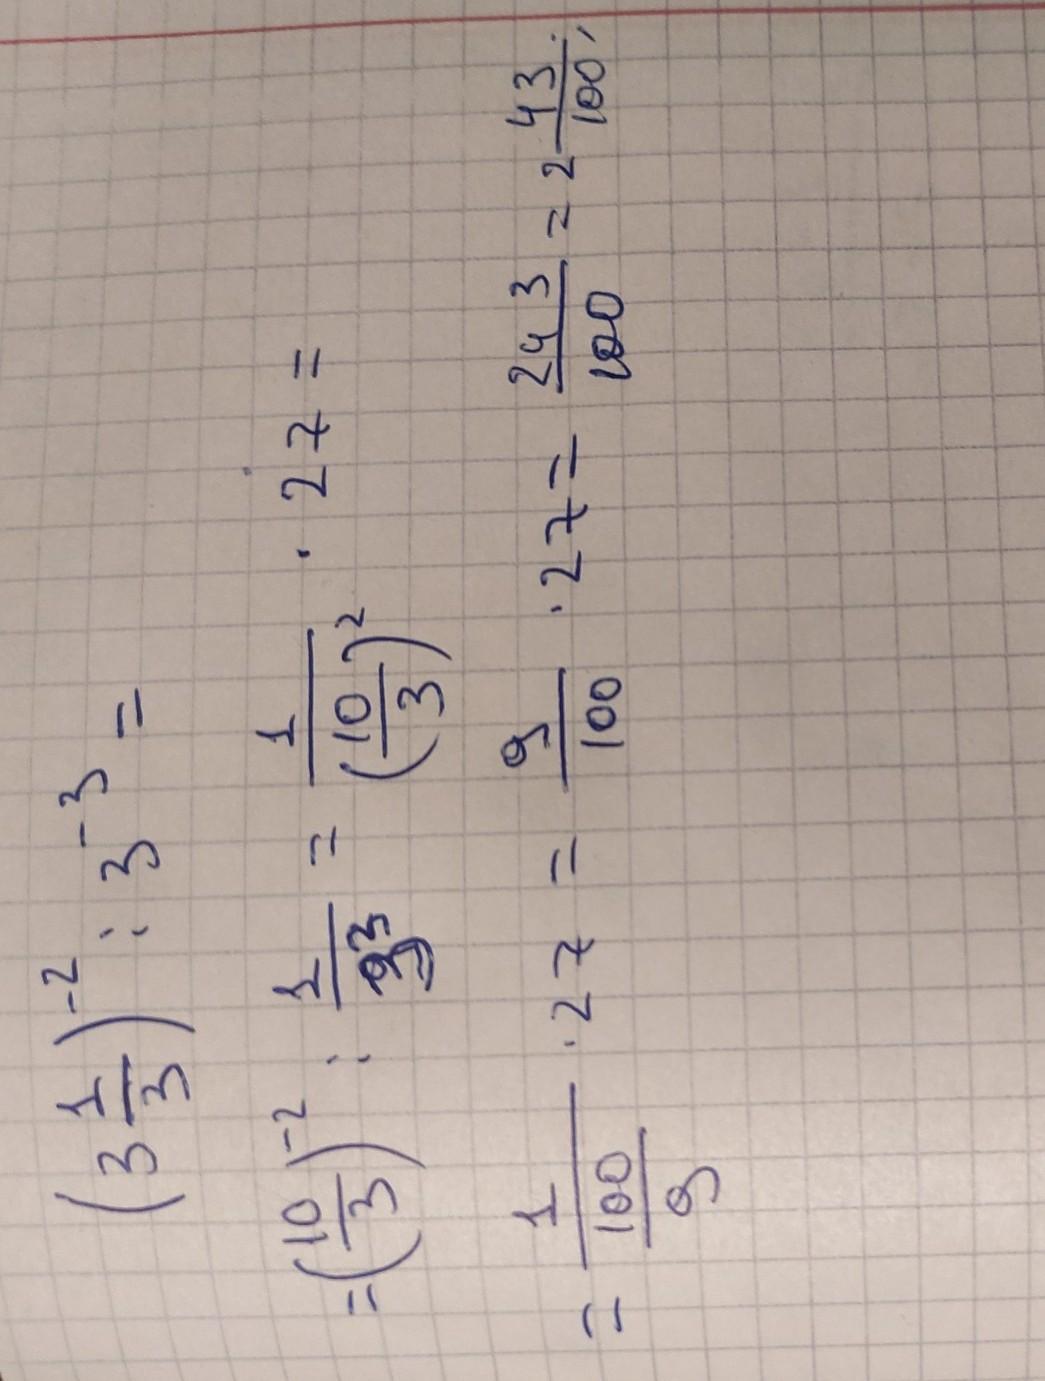 (3 1/3)^-2 : 3^-3 =
= (10/3)^-2 : 1/3^3 = 1/(10/3)^2 · 27 =
= 1/(100/9) · 27 = 9/100 · 27 = 243/100 = 2 43/100;